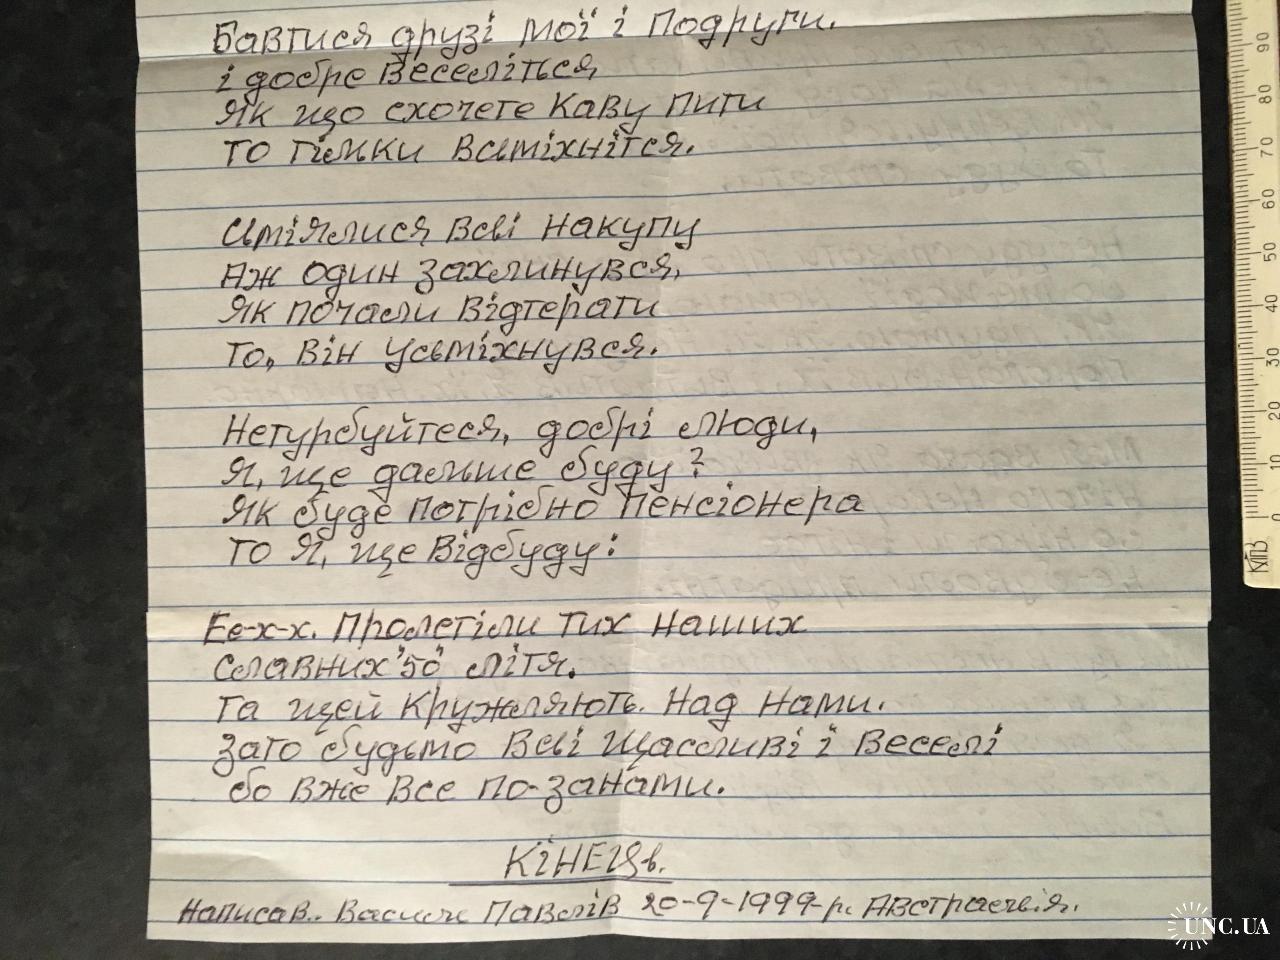 Бавтися друзі мої і подруги.
і добре веселіться,
Як що схочете каву пити
то тільки всьміхнітся.
Сьміялися всві накупу
Аж один захлинувся,
Як почали відтерати
то, він усьміхнувся.
Нетурбуйтеся, добрі люди,
Я, ще дальше буду?
Як буде потрібно пенсіонера
то Я, ще відбуду:
Ее-х-х. Пролетіли тих наших
славних "50" літя.
та щей кружляють. над нами.
зато будьмо всві щасливі і веселі
бо вже все по-занами.
КІНЕЦЬ.
Написав.. Василь Павлів 20-9-1999-р. Австралія.
90
80
70
60
50
40
30
20
10
0
UNC.UA